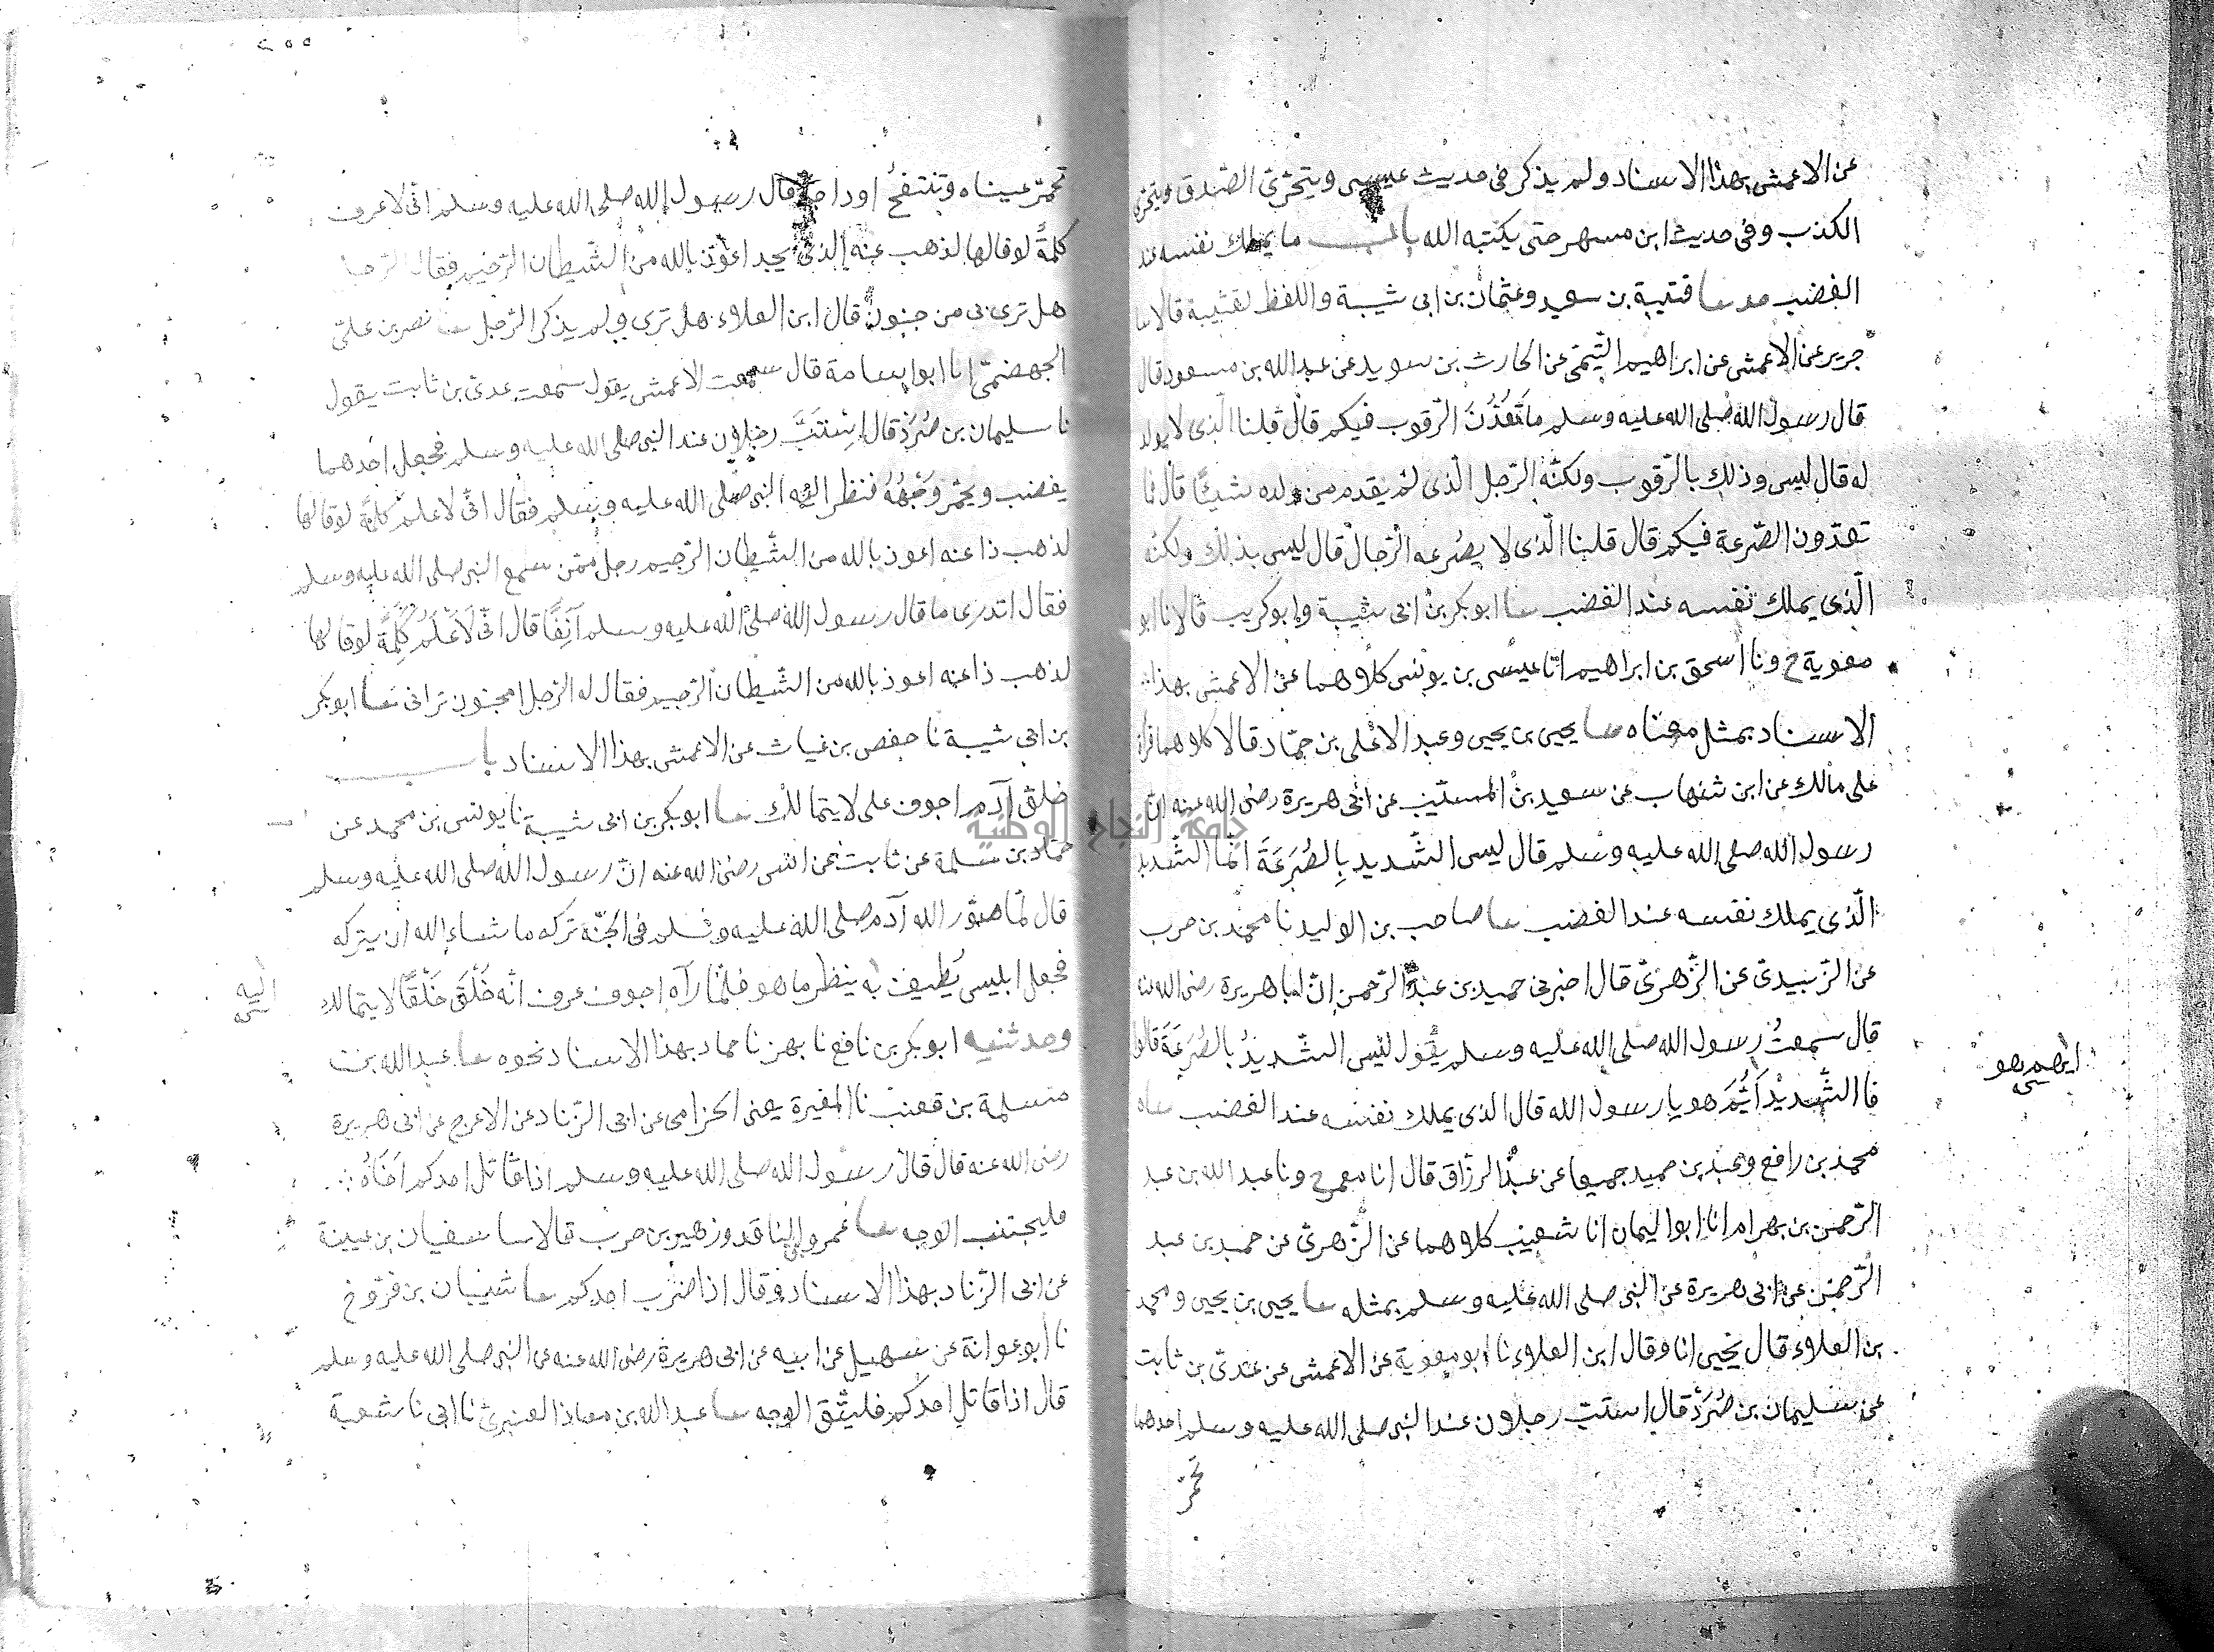 عن الاعمش بهذا الاسناد ولم يذكر فى حديث عيسى ويتحرّى الصّدق ويتحرى
الكذب وفى حديث ابن مسهر حتى يكتبه الله باب ما يملك نفسه عند
الغضب حدثنا قتيبة بن سعيد وعثمان بن ابى شيبة واللفظ لقتيبة قالا نا
جرير عن الاعمش عن ابراهيم التّيمىّ عن الحارث بن سويد عن عبد الله بن مسعود قال
قال رسول الله صلى الله عليه وسلم ما تعدّون الرّقوب فيكم قال قلنا الّذى لا يولد
له قال ليس وذلك بالرّقوب ولكنّه الرّجل الّذى لم يقدم من ولده شيئًا قال فما
تعدّون الصّرعة فيكم قال قلنا الّذى لا يصرعه الرّجال قال ليس بذلك ولكنّه
الّذى يملك نفسه عند الغضب نا ابو بكر بن ابى شيبة وابو كريب قالا نا ابو
معوية ح ونا اسحق بن ابراهيم انا عيسى بن يونس كلاهما عن الاعمش بهذا
الاسناد بمثل معناه نا يحيى بن يحيى وعبد الاعلى بن حمّاد قالا كلاهما قرأت
على مالك عن ابن شهاب عن سعيد بن المسيّب عن ابى هريرة رضى الله عنه انّ
رسول الله صلى الله عليه وسلم قال ليس الشّديد بِالصُّرَعَةَ انّما الشّديد
الّذى يملك نفسه عند الغضب نا صاحب بن الوليد نا محمّد بن حرب
عن الزّبيدىّ عن الزّهرىّ قال اخبرنى حميد بن عبد الرّحمن انّ ابا هريرة رضى الله عنه
قال سمعتُ رسول الله صلى الله عليه وسلم يقول ليس الشّديدُ بالصُّرَعَة قالوا
فا الشّديدُ أَيُّمَ هو يا رسول الله قال الذى يملك نفسه عند الغضب نا
ايهم هو
محمد بن رافع وعبد بن حميد جميعا عن عبد الرزّاق قال انا معمر ح ونا عبد الله بن عبد
الرّحمن بن بهرام انا ابو اليمان انا شعيب كلاهما عن الزّهرىّ عن حميد بن عبد
الرّحمن عن ابى هريرة عن النبى صلى الله عليه وسلم بمثله نا يحيى بن يحيى ومحمد
بن العلاء قال يحيى انا وقال ابن العلاء نا ابو معوية عن الاعمش عن عدىّ بن ثابت
عن سليمان بن صُرَدْ قال استبّ رجلان عند النبى صلى الله عليه وسلم احدهما
تحمرّ
٢٥٥
تحمرّ عيناه وتنتفخُ اوداجه قال رسول الله صلى الله عليه وسلم انّى لاعرف
كلمةً لو قالها لذهب عنه الذى يجد اعوذ بالله من الشّيطان الرّجيم فقال الرّجل
هل ترى بى من جنون قال ابن العلاء هل ترى ولم يذكر الرّجل نا نصر بن علىّ
الجهضمىّ انا ابو اسامة قال سمعت الاعمش يقول سمعت عدىّ بن ثابت يقول
نا سليمان بن صُرَدْ قال اِسْتَبَّ رجلان عند النبى صلى الله عليه وسلم فجعل احدهما
يغضب ويحمرّ وَجْهُهُ فنظر اليه النبى صلى الله عليه وسلم فقال انّى لاعلم كلمةً لو قالها
لذهب ذا عنه اعوذ بالله من الشّيطان الرّجيم رجل ممّن سمع النبى صلى الله عليه وسلم
فقال اتدرى ما قال رسول الله صلى الله عليه وسلم آنِفًا قال انّى لَاَعْلَمُ كَلِمَةً لو قالها
لذهب ذا عنه اعوذ بالله من الشّيطان الرّجيم فقال له الرّجل امجنون ترانى نا ابو بكر
بن ابى شيبة نا حفص بن غياث عن الاعمش بهذا الاسناد باب
خلق آدم اجوف على لا يتمالك نا ابو بكر بن ابى شيبة نا يونس بن محمد عن
حمّاد بن سلمة عن ثابت عن انس رضى الله عنه انّ رسول الله صلى الله عليه وسلم
قال لمّا صوّر الله آدم صلى الله عليه وسلم فى الجنّة تركه ما شاء الله ان يتركه
فجعل ابليس يُطيف به ينظر ما هو فلمّا رآه اجوف عرف انّه خُلِقَ خَلْقًا لا يتمالك
اليه
وحدثنيه ابو بكر بن نافع نا بهز نا حماد بهذا الاسناد نحوه نا عبد الله بن
مسلمة بن قعنب نا المغيرة يعنى الحزامى عن ابى الزّناد عن الاعرج عن ابى هريرة
رضى الله عنه قال قال رسول الله صلى الله عليه وسلم اذا قاتل احدكم اخاهُ
فليجتنب الوجه نا عمرو الناقد وزهير بن حرب قالا نا سفيان بن عيينة
عن ابى الزّناد بهذا الاسناد وقال اذا ضرب احدكم نا شيبان بن فرّوخ
نا ابو عوانة عن سهيل عن ابيه عن ابى هريرة رضى الله عنه عن النبى صلى الله عليه وسلم
قال اذا قاتل احدكم فليتّق الوجه نا عبد الله بن معاذ العنبرىّ نا ابى نا شعبة
جامعة النجاح الوطنية